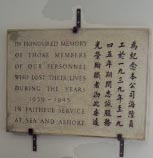 IN HONOURED MEMORY
OF THOSE MEMBERS
OF OUR PERSONNEL
WHO LOST THEIR LIVES
DURING THE YEARS
1939-1945
IN FAITHFUL SERVICE
AT SEA AND ASHORE
為紀念本公司海陸員
工於一九三九年至一九
四五年期間忠誠服務
光榮殉職者勒此為誌